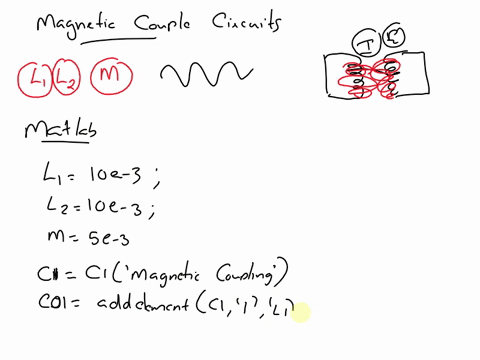 Magnetic Couple Circuits
T R
L1 L2 M
Matlab
L1 = 10e-3 ;
L2 = 10e-3 ;
M = 5e-3
C1 = C1('Magnetic Coupling')
CO1 = addelement(C1,'1','L1)